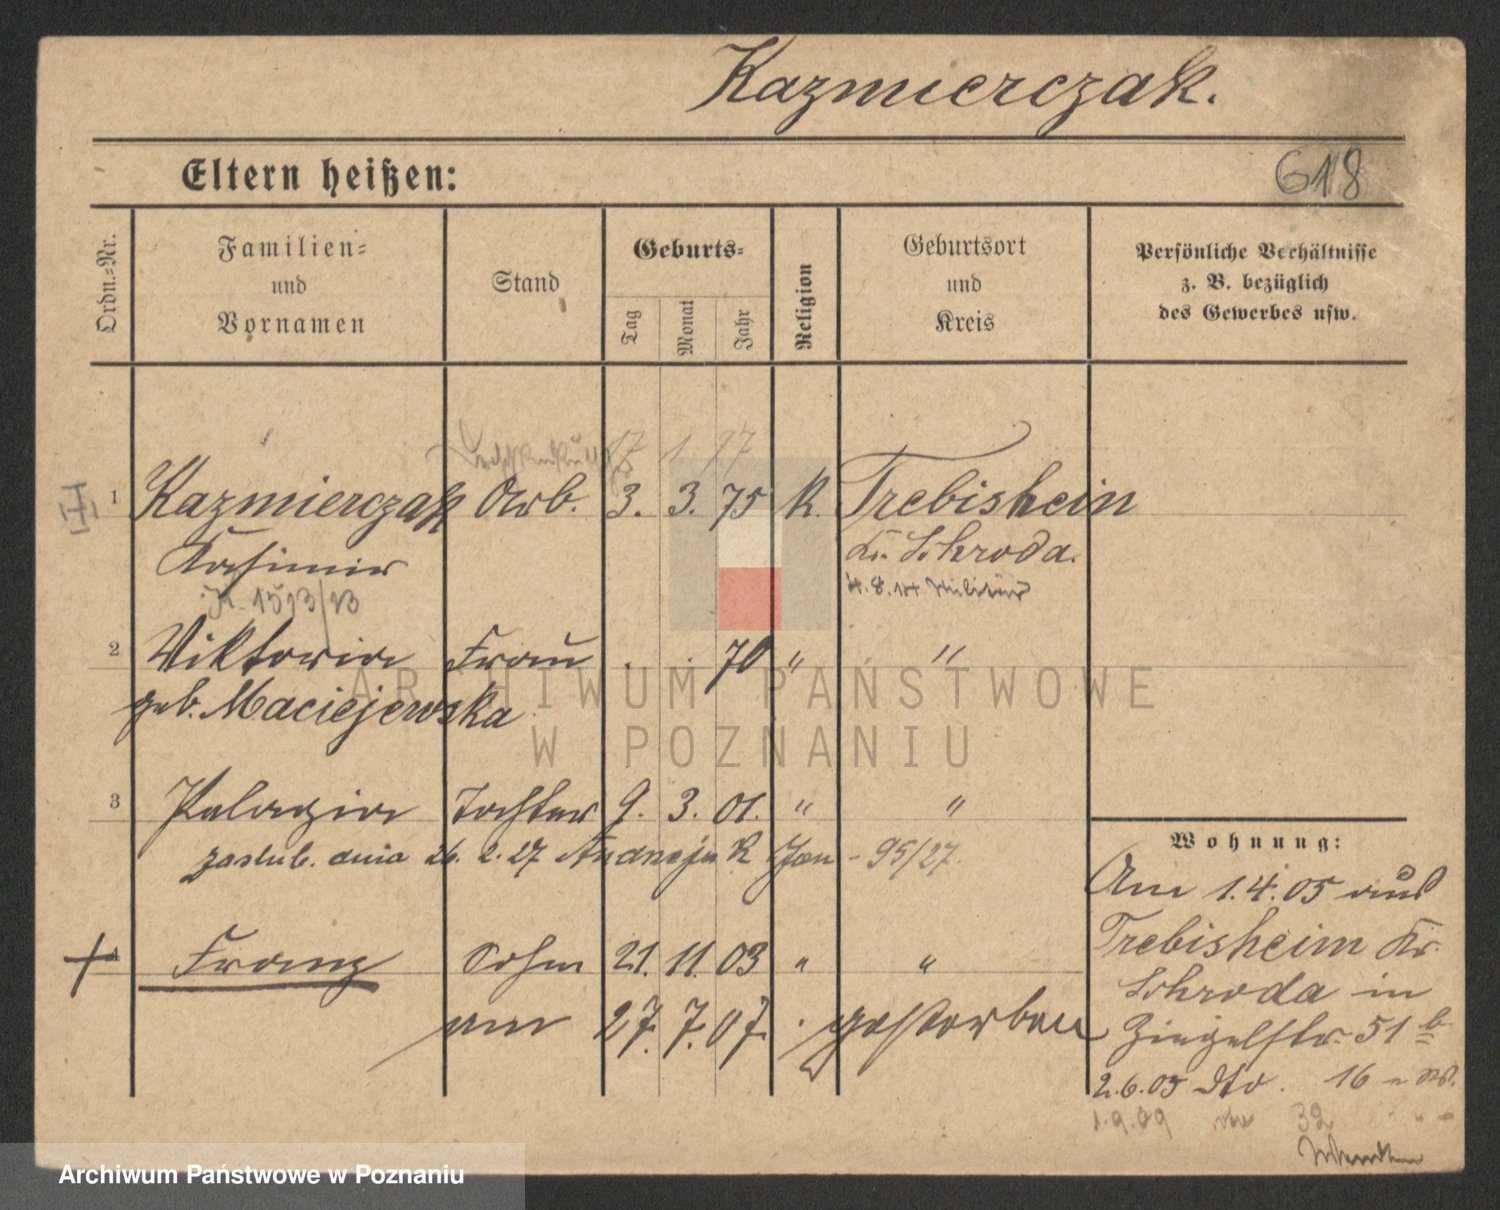 Kazmierczak.
Eltern heißen:
618
Ordn.-Nr.
Familien-
und
Vornamen
Stand
Geburts-
Tag
Monat
Jahr
Religion
Geburtsort
und
Kreis
Persönliche Verhältnisse
z. B. bezüglich
des Gewerbes usw.
17 1. 77
1 Kazmierczak Arb. 3. 3. 75 K. Trebishein
Kasimir Kr. Schroda.
1513/23 4.8.14 Militär
2 Wiktoria Frau . . 70 " "
geb. Maciejewska
3 Pelagia Tochter 9. 3. 01. " "
zaslub. dnia 26. 2. 27 Andrzejak Jan - 95/27.
4 Franz Sohn 21. 11. 03 " "
am 27. 7. 07. gestorben
Wohnung:
Am 1.4.05 aus
Trebisheim Kr.
Schroda in
Ziegelstr. 51 b
2.6.05 dto. 16
1.9.09 32
ARCHIWUM PAŃSTWOWE
W POZNANIU
Archiwum Państwowe w Poznaniu